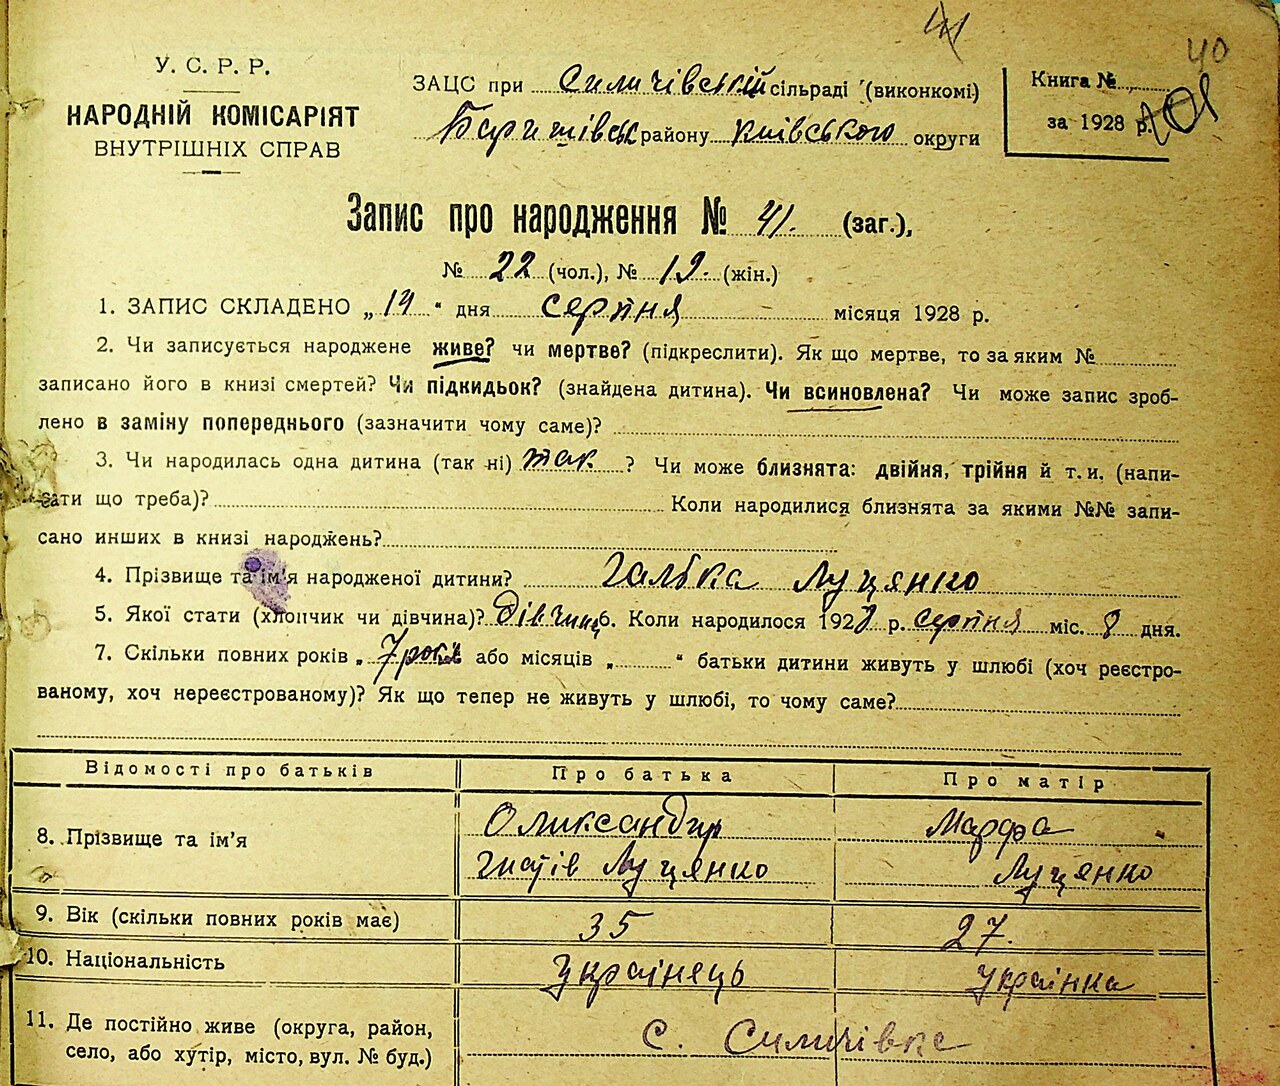 41
40
У. С. Р. Р.
НАРОДНІЙ КОМІСАРІЯТ
ВНУТРІШНІХ СПРАВ
ЗАЦС при Селичівській сільраді (виконкомі)
Баришівськ району Київського округи
Книга №
за 1928 р.
Запис про народження № 41. (заг.),
№ 22 (чол.), № 19. (жін.)
1. ЗАПИС СКЛАДЕНО „14" дня серпня місяця 1928 р.
2. Чи записується народжене живе? чи мертве? (підкреслити). Як що мертве, то за яким №
записано його в книзі смертей? Чи підкидьок? (знайдена дитина). Чи всиновлена? Чи може запис зроб-
лено в заміну попереднього (зазначити чому саме)?
3. Чи народилась одна дитина (так ні) так. ? Чи може близнята: двійня, трійня й т. и. (напи-
сати що треба)? Коли народилися близнята за якими №№ запи-
сано инших в книзі народжень?
4. Прізвище та ім'я народженої дитини? Галька Луценко
5. Якої стати (хлопчик чи дівчина)? Дівчина 6. Коли народилося 1928 р. серпня міс. 8 дня.
7. Скільки повних років „7 років або місяців „ " батьки дитини живуть у шлюбі (хоч реєстро-
ваному, хоч нереєстрованому)? Як що тепер не живуть у шлюбі, то чому саме?
Відомості про батьків
Про батька
Про матір
8. Прізвище та ім'я
Олександир
Луцянко
Марфа
Луцянко
9. Вік (скільки повних років має)
35
27.
10. Національність
Українець
Українка
11. Де постійно живе (округа, район,
село, або хутір, місто, вул. № буд.)
с. Селичівка